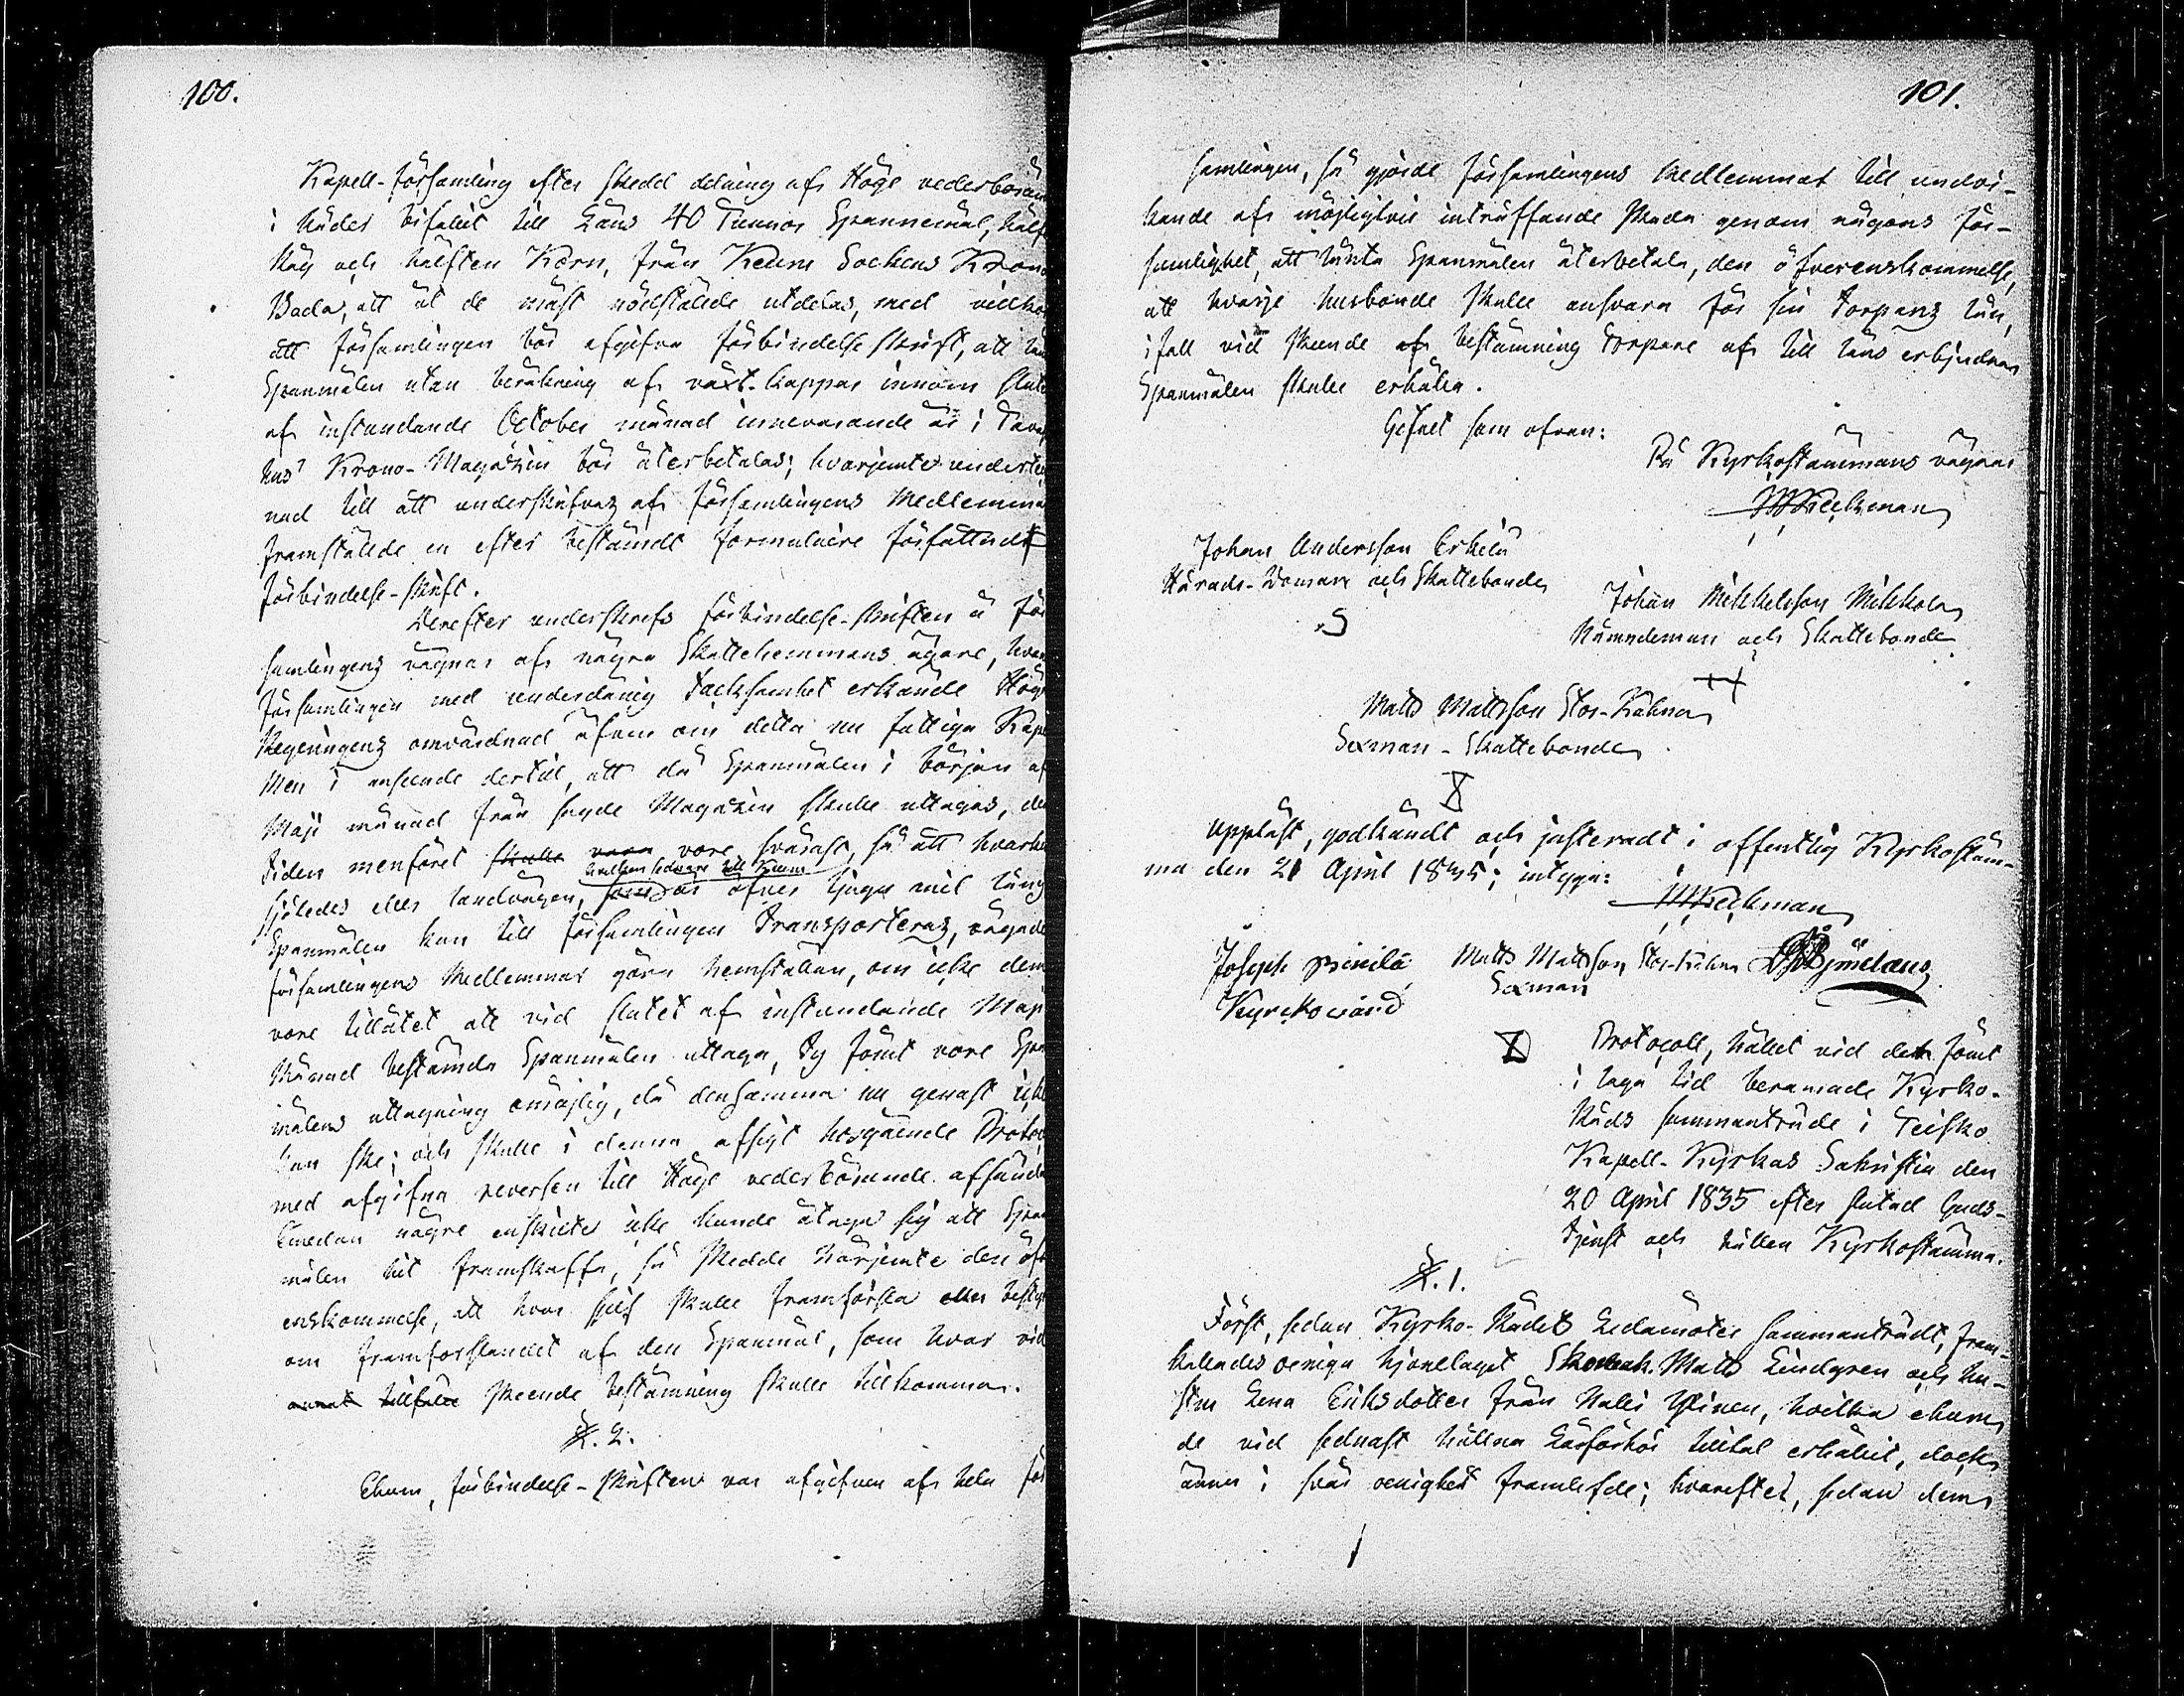 100.
Kapell-församling efter skedd delning af Höge vederbörande
i nåder bifallit till Låns 40 Tunnor Spannemål, hälf
Råg och hälften Korn, från Keuru Sockens Krono
Boda, att åt de mäst nödstälde utdelas, med vilko
att församlingen bör afgifva förbindelse skrift, att
Spanmålen utan beräkning af växt-kappar innom slut
af instundande October månad innevarande år i Tava
hus' Krono-Magazin bör återbetalas; hvarjemte underteck
nad till att underskrifvas af församlingens Medlemma
framstälde en efter bestämdt formulaire författad
förbindelse-skrift.
Derefter underskrefs förbindelse-skriften å för
samlingens vägnar af några Skattehemmans ägare, hvar
församlingen med underdånig tacksamhet erkände Höga
Regeringens omvårdnad äfven om detta nu fattiga Kap
Men i anseende dertill, att då Spanmålen i början af
Maji månad från sagde Magazin skulle uttagas, de
tiden menföret skulle vara vore svårast, så att hvarke
hvilken sednare till Keuru
sjöledes eller landvägen, som är öfver tjugu mil lång
Spanmålen kan till församlingen transporteras, vågade
församlingens Medlemmar göra hemställan, om icke dem
vore tillåtet att vid slutet af instundande Maji
Månad bestämda Spanmålen uttaga, ty förut vore Span
målens uttagning omöjlig, då densamma nu genast icke
kan ske; och skulle i denna afsigt hosgående Protoc
med afgifna reversen till Höge vederbörande afsändas
Emedan någre enskilte icke kunde åtaga sig att Span
målen hit framskaffa, så skedde härjemte den öfv
enskommelse, att hvar sjelf skulle framforsla eller besty
om framforslandet af den Spanmål, som hvar vid
annat tillfälle skeende bestämning skulle tillkomma.
§. 2.
Ehuru förbindelse-skriften var afgifven af hela för
101.
samlingen, så gjorde församlingens Medlemmar till undvi-
kande af möjligtvis inträffande skada genom någons för-
sumlighet, att lånta Spanmålen återbetala, den öfverenskommelse,
att hvarje husbonde skulle ansvara för sin Torpares lån,
ifall vid skeende af bestämning Torpare af till låns erbjudna
Spanmålen skulle erhålla.
Gifvet som ofvan:
På Kyrkostämmans vägnar
Johan Andersson Erkilä
Härads-Domare och Skattebonde
Johan Mikkelsson Mikkola
Nämndeman och Skattebonde
Matts Mattsson Stor-Kähnä
Sexman-Skattebonde
Uppläst, godkändt och justeradt i offentlig Kyrkostäm-
ma den 21 April 1835; intyga:
Joseph Pinilä Matts Mattsson Stor-Kähnä Björklund
Kyrckowärd Sexman
Protocoll, hållet vid det förut
i laga tid beramade Kyrko-
Råds sammanträde i Teisko
Kapell-Kyrkas Sakristia den
20 April 1835 efter slutad Guds-
tjenst och hållen Kyrkostämma.
§. 1.
Först, sedan Kyrko-Rådets Ledamöter sammanträdt, fram-
kallades oeniga hjonelaget Skomak. Matts Lindgren och hu-
stru Lena Eriksdotter från Ylinen, hvilka ehuru
de vid sednast hållna Läsförhör tilltal erhållit, dock
ännu i svår oenighet framlefde; hvarefter, sedan dem